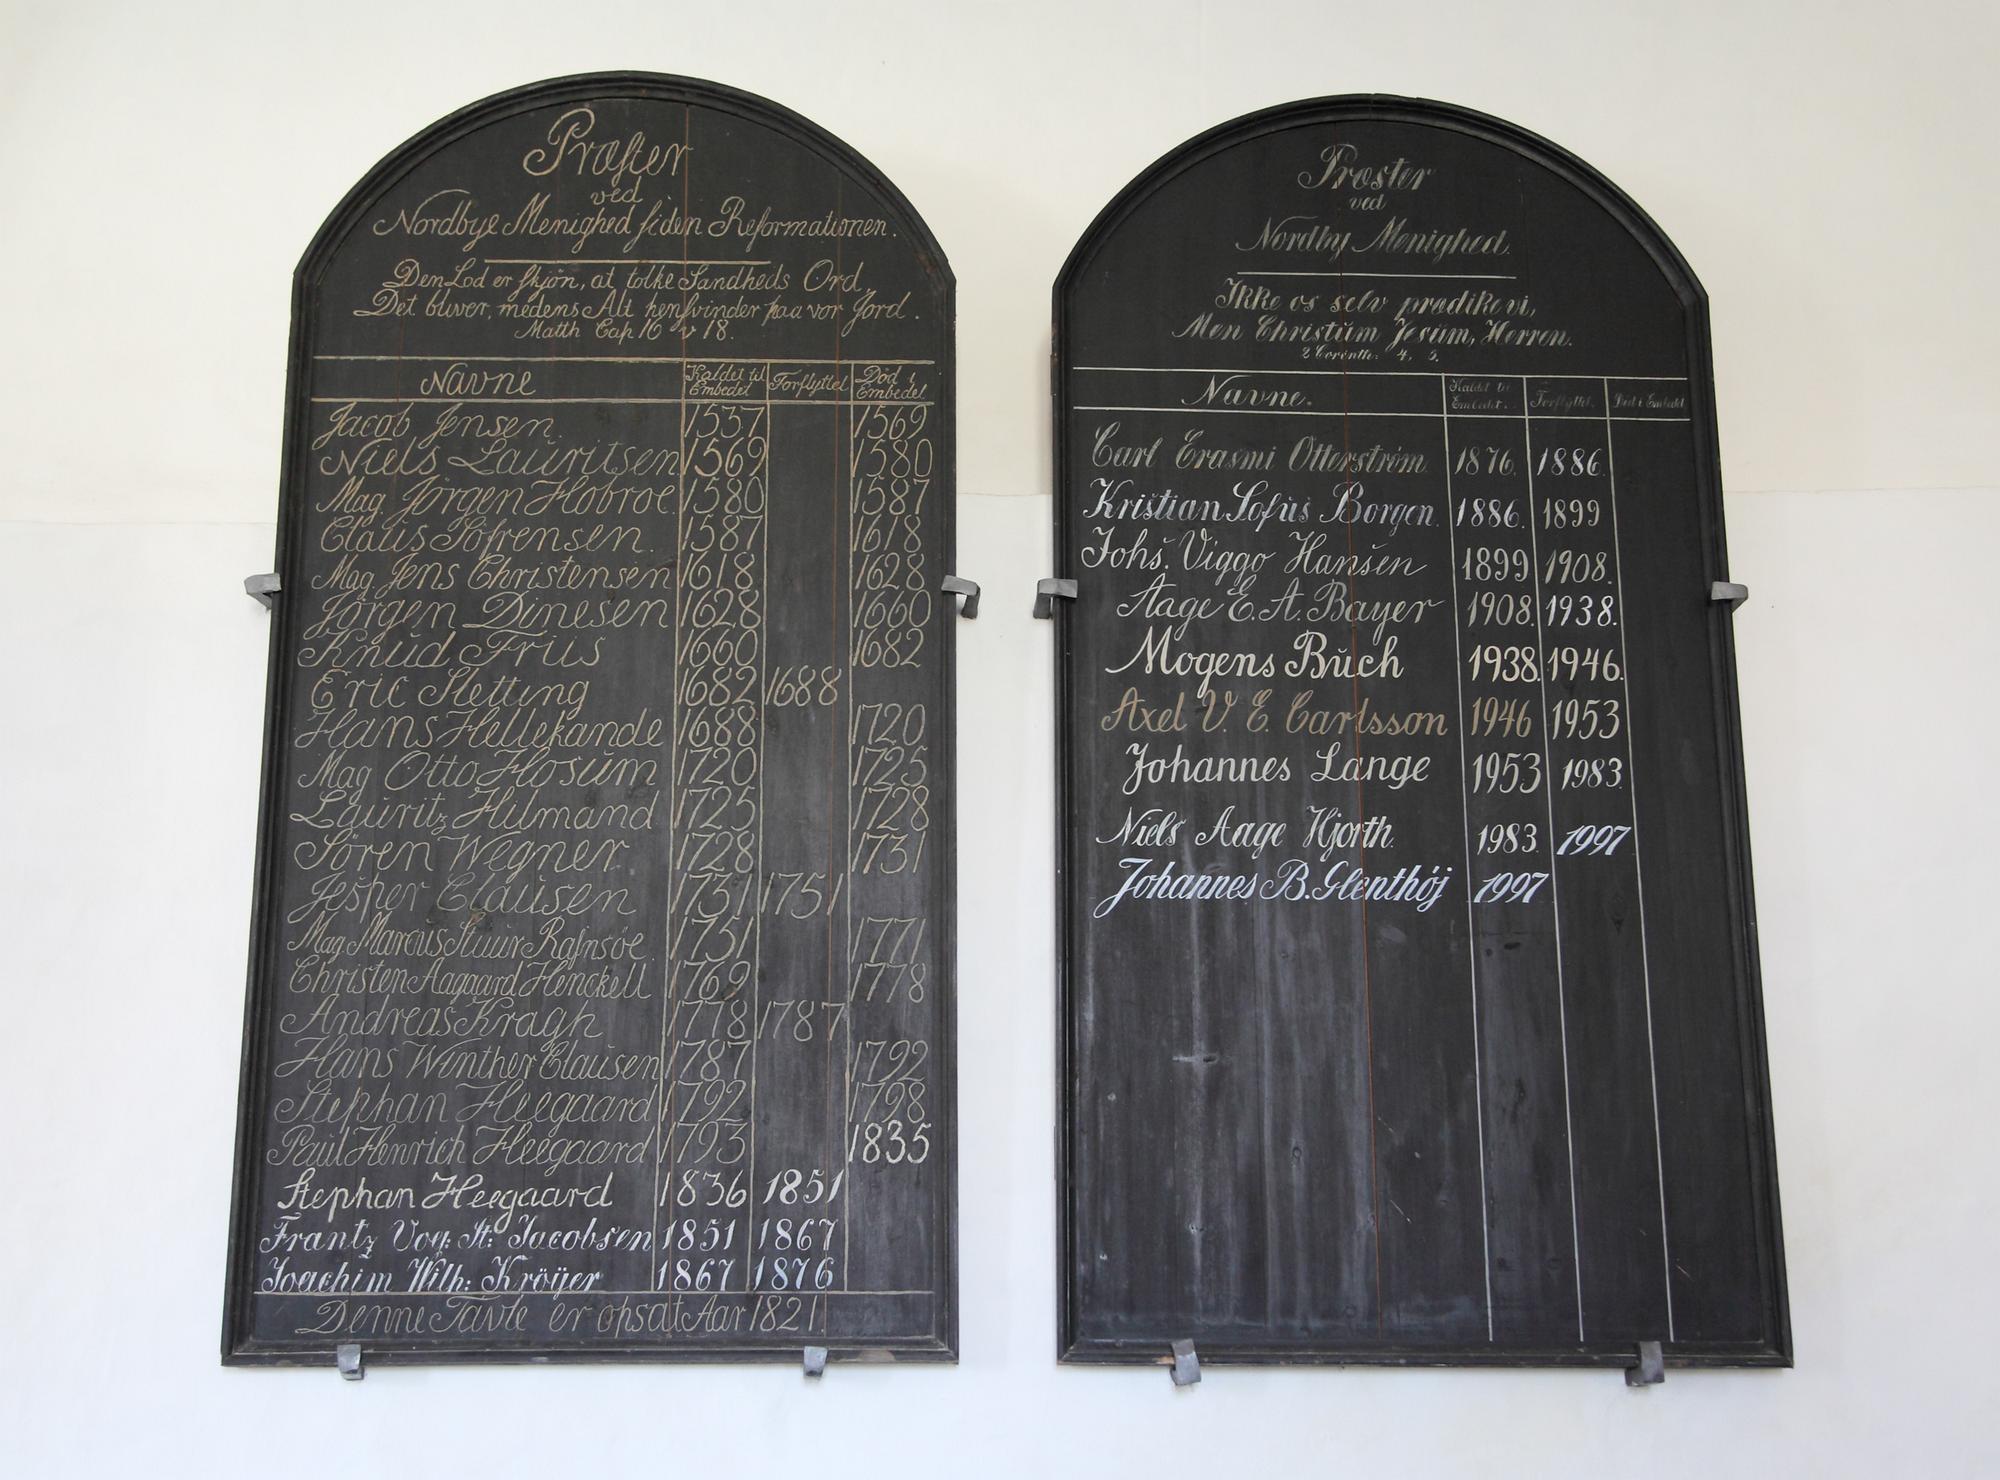 Præster
ved
Nordbye Menighed siden Reformationen.
Den Lod er skjøn, at tolke Sandheds Ord,
Det bliver, medens Alt hensvinder paa vor Jord.
Matth Cap 16 v 18.
Navne Kaldet til Embedet Forflyttet Død i Embedet
Jacob Jensen 1537 1569
Niels Lauritsen 1569 1580
Mag. Jörgen Hobroe 1580 1587
Claus Söfrensen. 1587 1618
Mag. Jens Christensen 1618 1628
Jörgen Dinesen 1628 1660
Knud Friis 1660 1682
Eric Sletting 1682 1688
Hans Hellekande 1688 1720
Mag Otto Hosum 1720 1725
Lauritz Hilmand 1725 1728
Sören Wegner 1728 1731
Jesper Clausen 1731 1751
Mag Marcus Stuur Rafnsöe 1751 1771
Christen Aagaard Henckell 1769 1778
Andreas Kragh 1778 1787
Hans Winther Clausen 1787 1792
Stephan Heegaard 1792 1798
Paul Henrich Heegaard 1793 1835
Stephan Heegaard 1836 1851
Frantz Vog: St: Jacobsen 1851 1867
Joachim Wilh: Kröÿer 1867 1876
Denne Tavle er opsat Aar 1821.
Præster
ved
Nordby Menighed.
Ikke os selv prædike vi,
Men Christum Jesum, Herren.
2 Corinth: 4, 5.
Navne. Kaldet til Embedet. Forflyttet. Död i Embedet
Carl Erasmi Otterström. 1876. 1886.
Kristian Sofus Borgen. 1886. 1899
Johs. Viggo Hansen 1899 1908.
Aage E. A. Bayer 1908. 1938.
Mogens Buch 1938. 1946.
Axel V. E. Carlsson 1946 1953
Johannes Lange 1953 1983.
Niels Aage Hjorth. 1983. 1997
Johannes B. Glenthój 1997